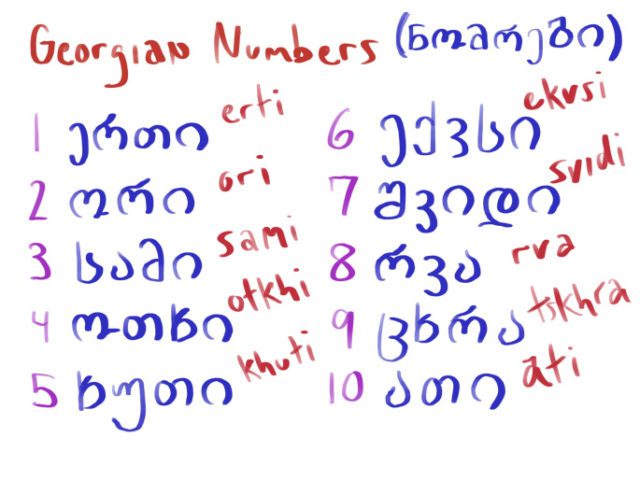 Georgian Numbers (ნომრები)
1 ერთი erti
2 ორი ori
3 სამი sami
4 ოთხი otkhi
5 ხუთი khuti
6 ექვსი ekvsi
7 შვიდი svidi
8 რვა rva
9 ცხრა tskhra
10 ათი ati